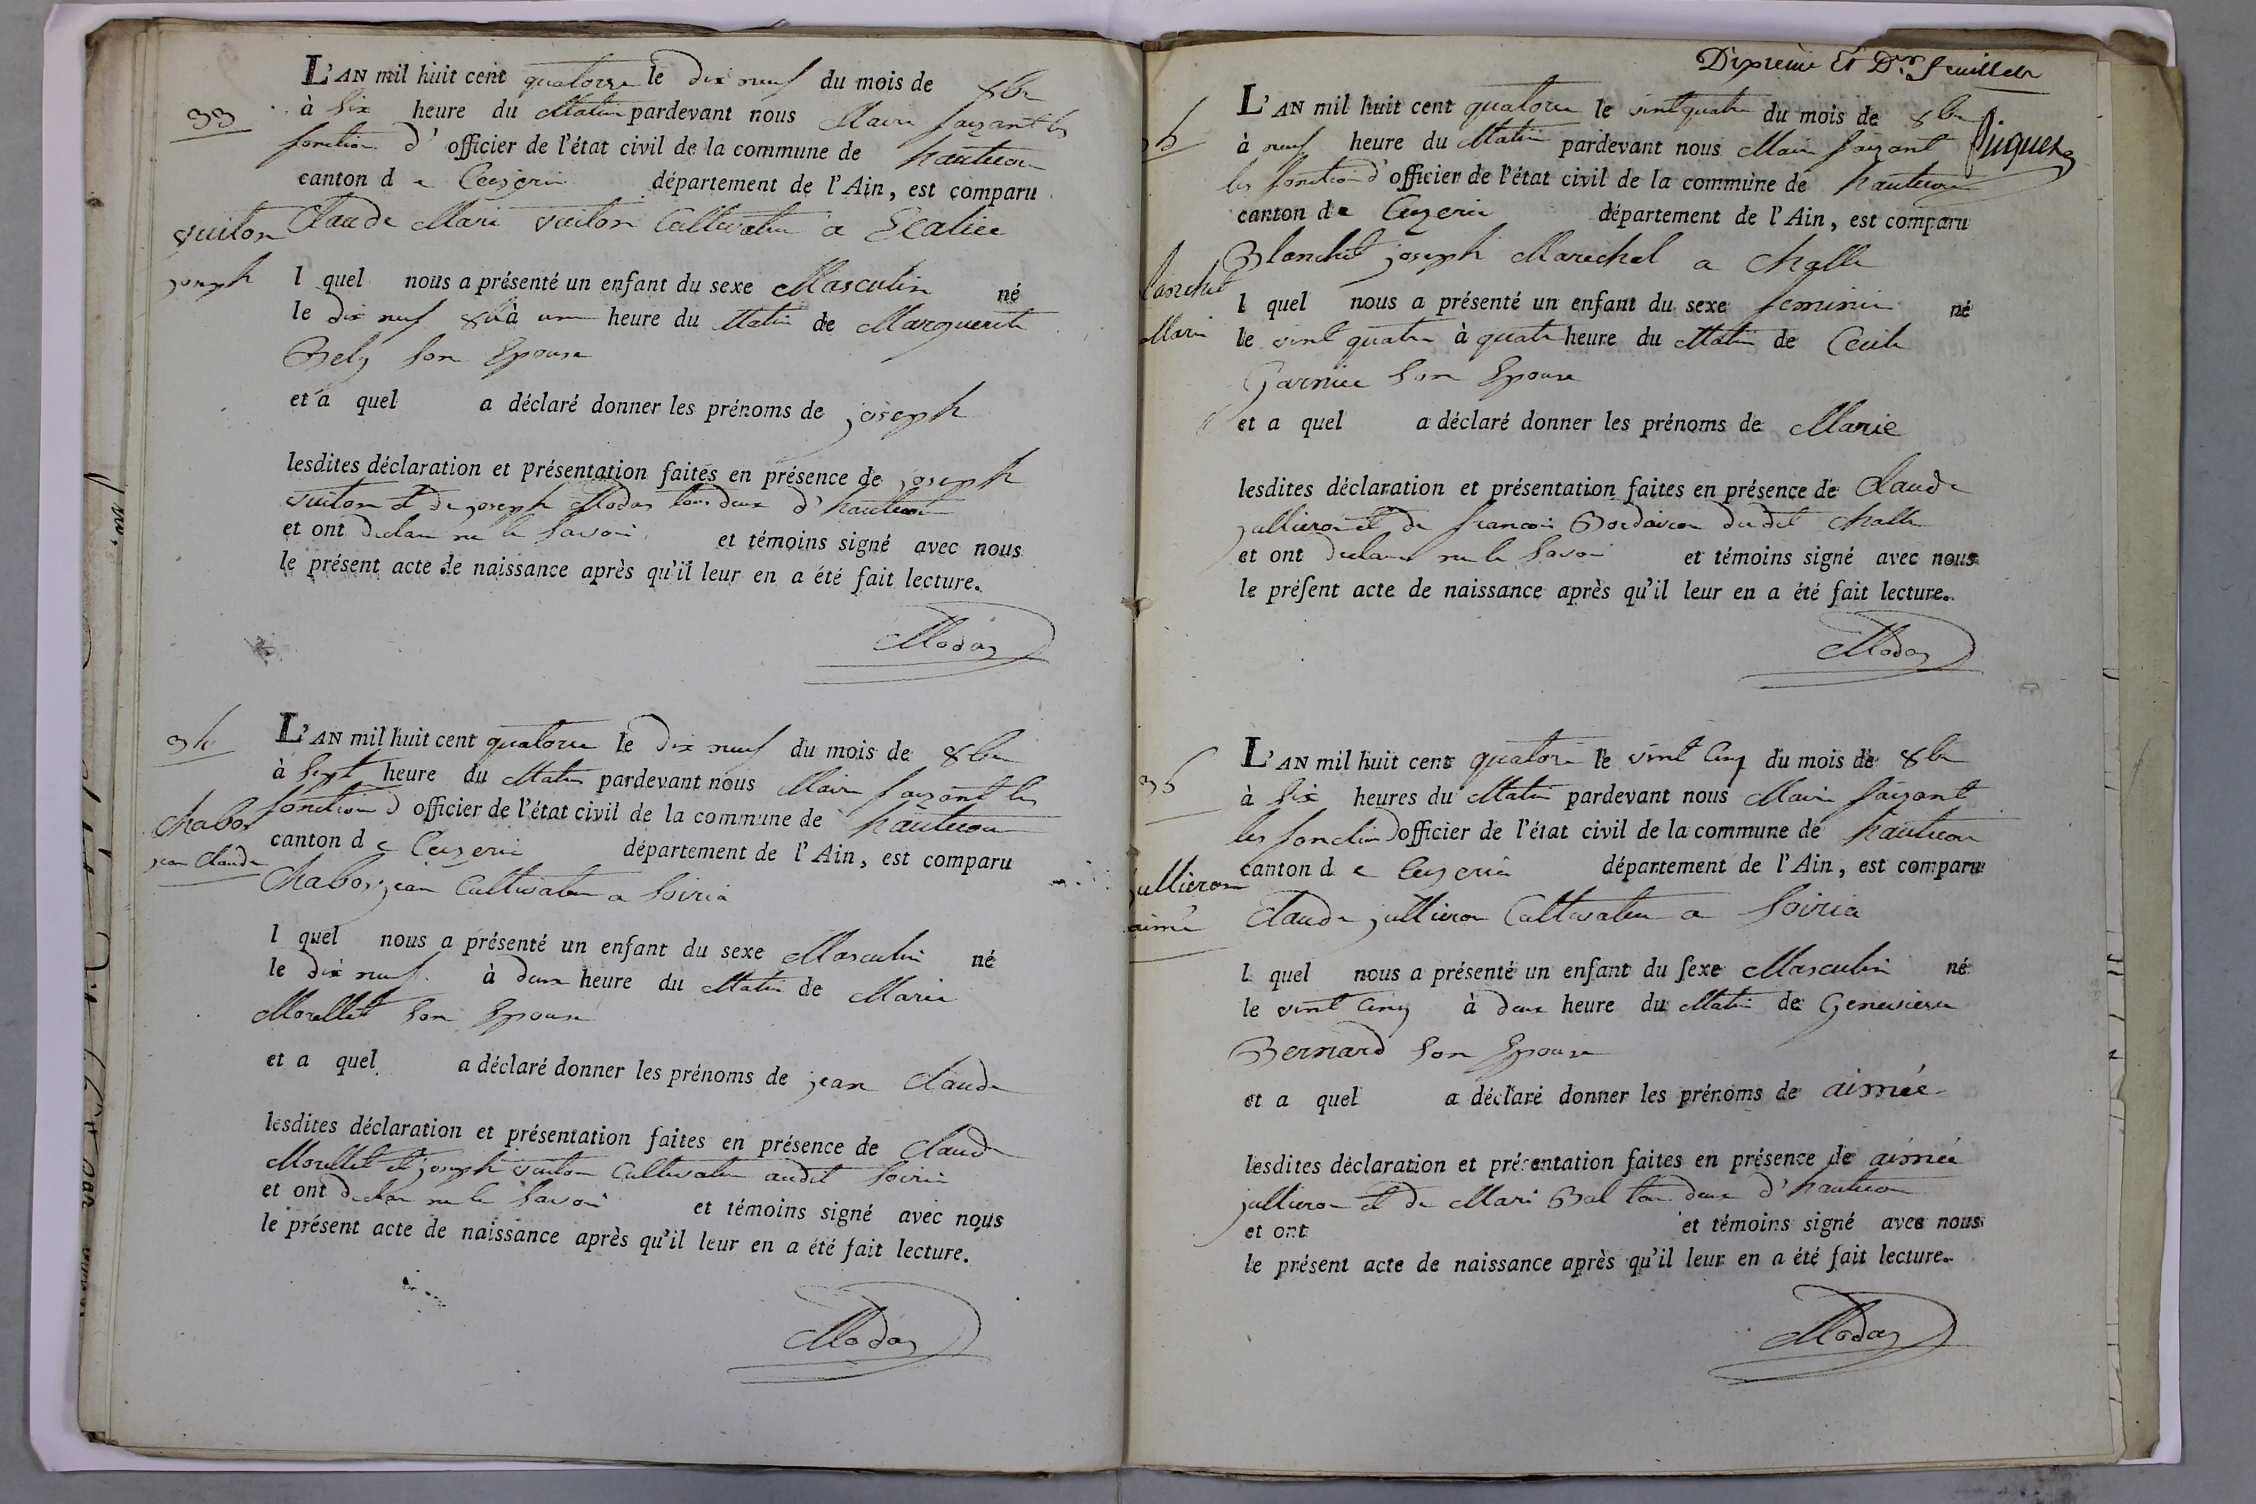 33
L'AN mil huit cent quatorze le dix neuf du mois de 8bre
à Six heure du Matin pardevant nous Maire faizant les
fonction d'officier de l'état civil de la commune de hautecour
canton de Ceyzeria département de l'Ain, est comparu
vuiton Claude Marie vuiton Cultivateur a
joseph l quel nous a présenté un enfant du sexe Masculin né
le dix neuf 8bre à une heure du Matin de Marguerite
Bely Son Epouse
et a quel a déclaré donner les prénoms de joseph
lesdites déclaration et présentation faites en présence de joseph
vuiton et de joseph Modas tous deux d'hautecour
et ont declare ne le Savoir et témoins signé avec nous
le présent acte de naissance après qu'il leur en a été fait lecture.
Modas
34
L'AN mil huit cent quatorze le dix neuf du mois de 8bre
à Sept heure du Matin pardevant nous Maire faizant les
fonction d'officier de l'état civil de la commune de hautecour
Chabot
jean Claude
canton de Ceyzeria département de l'Ain, est comparu
Chabot jean Cultivateur a Soiria
l quel nous a présenté un enfant du sexe Masculin né
le dix neuf à deux heure du Matin de Marie
Morellet Son Epouse
et a quel a déclaré donner les prénoms de jean Claude
lesdites déclaration et présentation faites en présence de Claude
Morellet et joseph vuiton Cultivateur audit Soiria
et ont declare ne le Savoir et témoins signé avec nous
le présent acte de naissance après qu'il leur en a été fait lecture.
Modas
Dixieme Et Dr. feuillet
L'AN mil huit cent quatorze le vint quatre du mois de 8bre
à neuf heure du Matin pardevant nous Maire faizant
les fonction d'officier de l'état civil de la commune de hautecour
canton de Ceyzeria département de l'Ain, est comparu
Blanchet joseph Marechal a Challe
lanchet
Marie
l quel nous a présenté un enfant du sexe feminin né
le vint quatre à quatre heure du Matin de Cecile
Garnier Son Epouse
et a quel a déclaré donner les prénoms de Marie
lesdites déclaration et présentation faites en présence de Claude
jullieron et de francois dudit Challe
et ont declare ne le Savoir et témoins signé avec nous
le présent acte de naissance après qu'il leur en a été fait lecture.
Modas
36
L'AN mil huit cent quatorze le vint Cinq du mois de 8bre
à Six heures du Matin pardevant nous Maire faizant
les fonction d'officier de l'état civil de la commune de hautecour
canton de Ceyzeria département de l'Ain, est comparu
jullieron
aimé
Claude jullieron Cultivateur a Soiria
l quel nous a présenté un enfant du sexe Masculin né
le vint Cinq à deux heure du Matin de Genevieve
Bernard Son Epouse
et a quel a déclaré donner les prénoms de aimée
lesdites déclaration et présentation faites en présence de aimée
jullieron et de Marie Bal tou deux d'hautecour
et ont et témoins signé avec nous
le présent acte de naissance après qu'il leur en a été fait lecture.
Modas